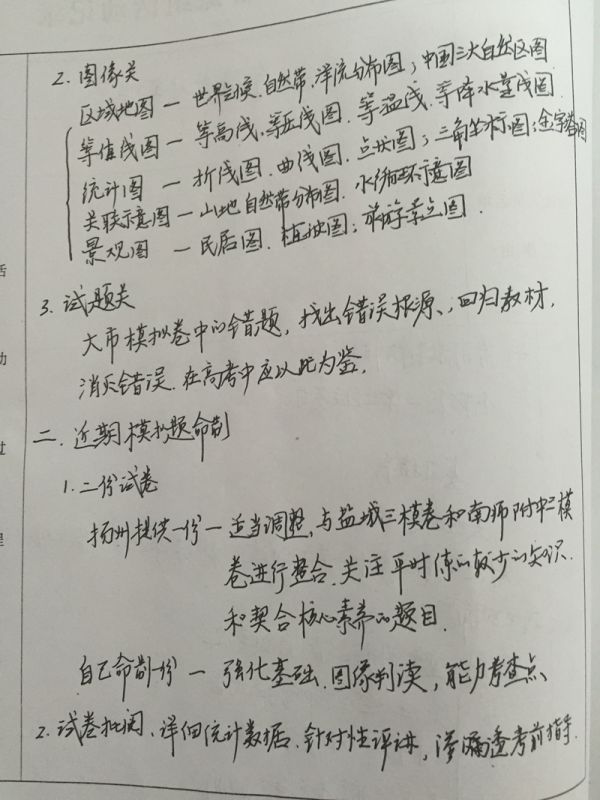 2. 图像关
区域地图 — 世界气候、自然带、洋流分布图；中国三大自然区图
等值线图 — 等高线、等压线图、等温线、等降水量线图
统计图 — 折线图、曲线图、点状图；三角坐标图；金字塔图
关联示意图 — 山地自然带分布图、水循环示意图
景观图 — 民居图、植被图；旅游景点图.
3. 试题关
大市模拟卷中的错题，找出错误根源，回归教材，
消灭错误. 在高考中应以此为鉴.
二. 近期模拟题命制
1. 二份试卷
扬州提供一份 — 适当调整，与盐城三模卷和南师附中三模
卷进行整合. 关注平时练的较少的知识.
和契合核心素养的题目.
自己命制一份 — 强化基础. 图像判读，能力考查点
2. 试卷批阅、详细统计数据、针对性评讲，渗透考前指导.
话
动
过
程